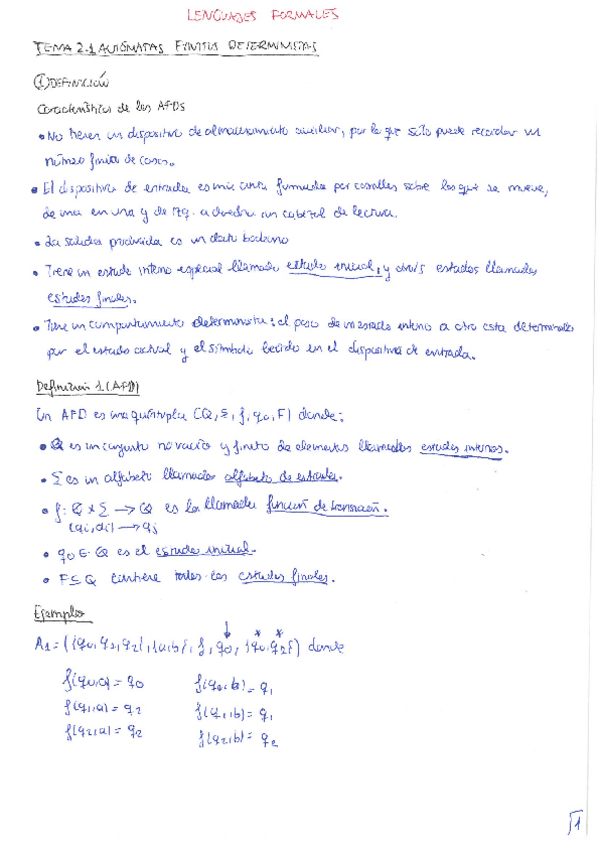 LENGUAJES FORMALES
TEMA 2.1 AUTÓMATAS FINITOS DETERMINISTAS
① DEFINICIÓN
Características de los AFDs
• No tienen un dispositivo de almacenamiento auxiliar, por lo que sólo puede recordar un
número finito de cosas.
• El dispositivo de entrada es una cinta formada por casillas sobre las que se mueve,
de una en una y de izq. a derecha un cabezal de lectura.
• La salida producida es un dato booleano
• Tiene un estado interno especial llamado estado inicial, y otro/s estados llamados
estados finales.
• Tiene un comportamiento determinista: el paso de un estado interno a otro esta determinado
por el estado actual y el símbolo leído en el dispositivo de entrada.
Definición 1 (AFD)
Un AFD es una quíntupla (Q, Σ, f, q₀, F) donde:
• Q es un conjunto no vacío y finito de elementos llamados estados internos.
• Σ es un alfabeto llamado alfabeto de entrada.
• f: Q x Σ → Q es la llamada función de transición.
(qi, ai) → qj
• q₀ ∈ Q es el estado inicial.
• F ⊆ Q contiene todos los estados finales.
Ejemplo
↓ * *
A₁ = ({q₀, q₁, q₂}, {a,b}, f, q₀, {q₀, q₂}) donde
f(q₀,a) = q₀ f(q₀,b) = q₁
f(q₁,a) = q₂ f(q₁,b) = q₁
f(q₂,a) = q₂ f(q₂,b) = q₂
1